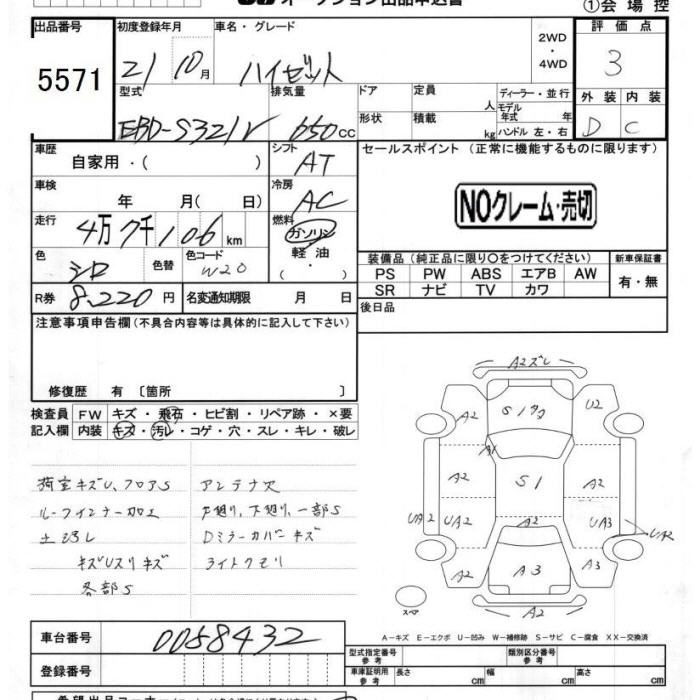 オークション出品申込書 ①会場控
出品番号 初度登録年月 車名・グレード 2WD ・ 4WD 評価点
5571 21 10月 ハイゼット 3
型式 排気量 ドア 定員 人 ディーラー・並行 外装 内装
EBD-S321V 650cc 形状 積載 kg モデル年式 年 ハンドル 左・右 D C
車歴 自家用・( ) シフト AT セールスポイント (正常に機能するものに限ります)
車検 年 月( 日) 冷房 AC
NOクレーム・売切
走行 4万7千106km 燃料 ガソリン 軽油 ・
色 シロ 色替 色コード W20 装備品 (純正品に限り○をつけてください) 新車保証書
PS PW ABS エアB AW 有・無
SR ナビ TV カワ
R券 8,220円 名変通知期限 月 日 後日品
注意事項申告欄 (不具合内容等は具体的に記入して下さい)
修復歴 有 〔箇所 〕
検査員 FW キズ・飛石・ヒビ割・リペア跡・×要
記入欄 内装 キズ・汚レ・コゲ・穴・スレ・キレ・破レ
荷室キズU、フロアS アンテナ欠
ルーフインナー加工 下廻り、一部S
土汚レ Dミラーカバーキズ
キズUスリキズ ライトクモリ
各部S
A2ズレ
A2 S1 U2
A1
A2 S1 A2
UA2 UA2 A2 UA3 UA2
A2 A3 A3
A2
スペア
A-キズ E-エクボ U-凹み W-補修跡 S-サビ C-腐食 XX-交換済
車台番号 0058432 型式指定番号 参考 類別区分番号 参考
登録番号 車庫証明用 参考 長さ cm 幅 cm 高さ cm